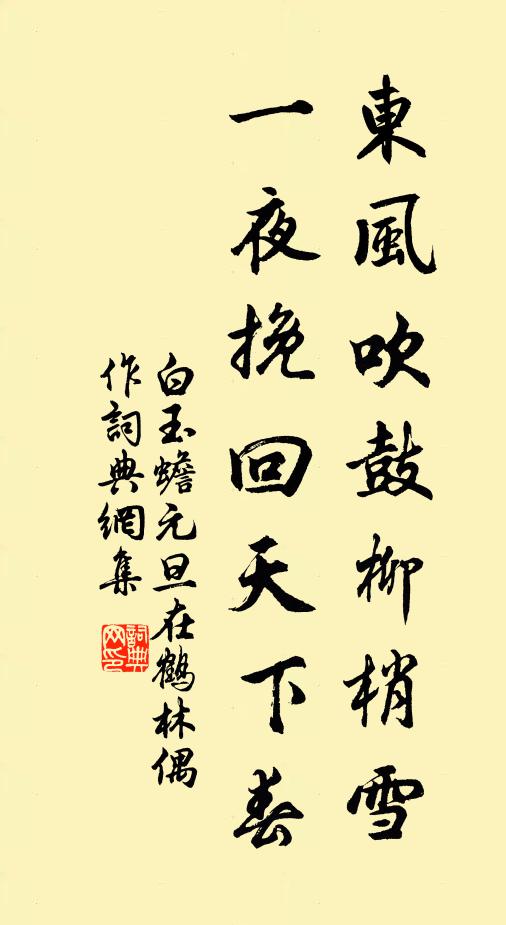 東風吹鼓柳梢雪
一夜挽回天下春
白玉蟾元旦在鶴林偶
作詞典網集
詞典
网印